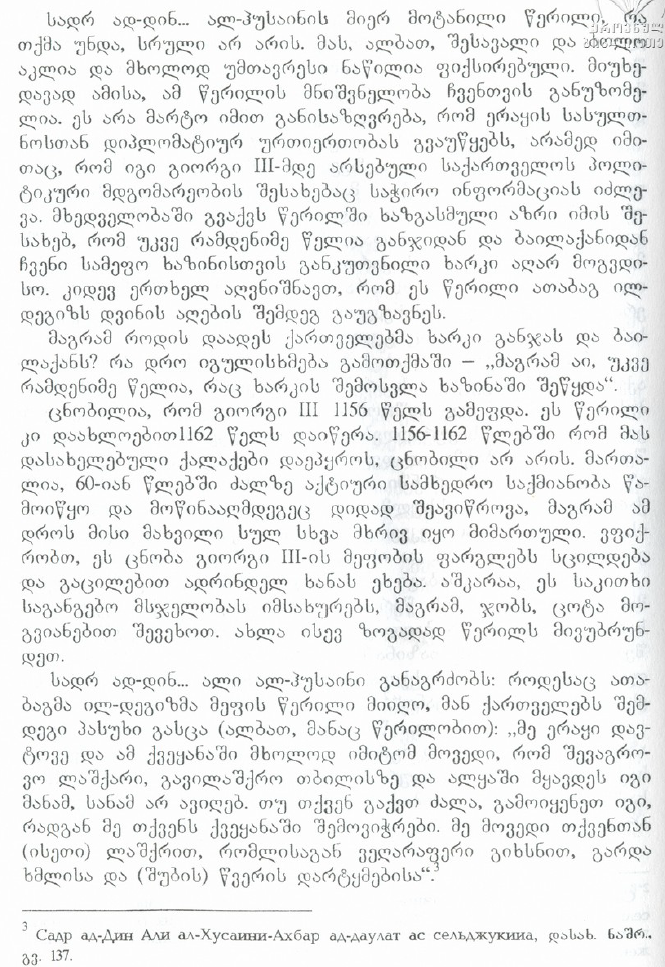 სადრ ად-დინ... ალ-ჰუსაინის მიერ მოტანილი წერილი, რა
თქმა უნდა, სრული არ არის. მას, ალბათ, შესავალი და ბოლო
აკლია და მხოლოდ უმთავრესი ნაწილია ფიქსირებული. მიუხე-
დავად ამისა, ამ წერილის მნიშვნელობა ჩვენთვის განუზომე-
ლია. ეს არა მარტო იმით განისაზღვრება, რომ ერაყის სასულთ-
ნოსთან დიპლომატიურ ურთიერთობას გვაუწყებს, არამედ იმი-
თაც, რომ იგი გიორგი III-მდე არსებული საქართველოს პოლი-
ტიკური მდგომარეობის შესახებაც საჭირო ინფორმაციას იძლე-
ვა. მხედველობაში გვაქვს წერილში ხაზგასმული აზრი იმის შე-
სახებ, რომ უკვე რამდენიმე წელია განჯიდან და ბაილაქანიდან
ჩვენი სამეფო ხაზინისთვის განკუთვნილი ხარკი აღარ მოგვდი-
სო. კიდევ ერთხელ აღვნიშნავთ, რომ ეს წერილი ათაბაგ ილ-
დეგიზს დვინის აღების შემდეგ გაუგზავნეს.
მაგრამ როდის დაადეს ქართველებმა ხარკი განჯას და ბაი-
ლაქანს? რა დრო იგულისხმება გამოთქმაში – „მაგრამ აი, უკვე
რამდენიმე წელია, რაც ხარკის შემოსვლა ხაზინაში შეწყდა“.
ცნობილია, რომ გიორგი III 1156 წელს გამეფდა. ეს წერილი
კი დაახლოებით1162 წელს დაიწერა. 1156-1162 წლებში რომ მას
დასახელებული ქალაქები დაეპყროს, ცნობილი არ არის. მართა-
ლია, 60-იან წლებში ძალზე აქტიური სამხედრო საქმიანობა წა-
მოიწყო და მოწინააღმდეგეც დიდად შეავიწროვა, მაგრამ ამ
დროს მისი მახვილი სულ სხვა მხრივ იყო მიმართული. ვფიქ-
რობთ, ეს ცნობა გიორგი III-ის მეფობის ფარგლებს სცილდება
და გაცილებით ადრინდელ ხანას ეხება. აშკარაა, ეს საკითხი
საგანგებო მსჯელობას იმსახურებს, მაგრამ, ჯობს, ცოტა მო-
გვიანებით შევეხოთ. ახლა ისევ ზოგადად წერილს მივუბრუნ-
დეთ.
სადრ ად-დინ... ალი ალ-ჰუსაინი განაგრძობს: როდესაც ათა-
ბაგმა ილ-დეგიზმა მეფის წერილი მიიღო, მან ქართველებს შემ-
დეგი პასუხი გასცა (ალბათ, მანაც წერილობით): „მე ერაყი დავ-
ტოვე და ამ ქვეყანაში მხოლოდ იმიტომ მოვედი, რომ შევაგრო-
ვო ლაშქარი, გავილაშქრო თბილისზე და ალყაში მყავდეს იგი
მანამ, სანამ არ ავიღებ. თუ თქვენ გაქვთ ძალა, გამოიყენეთ იგი,
რადგან მე თქვენს ქვეყანაში შემოვიჭრები. მე მოვედი თქვენთან
(ისეთი) ლაშქრით, რომლისაგან ვეღარაფერი გიხსნით, გარდა
ხმლისა და (შუბის) წვერის დარტყმებისა“.³
³ Садр ад-Дин Али ал-Хусаини-Ахбар ад-даулат ас сельджукииа, დასახ. ნაშრ.,
გვ. 137.